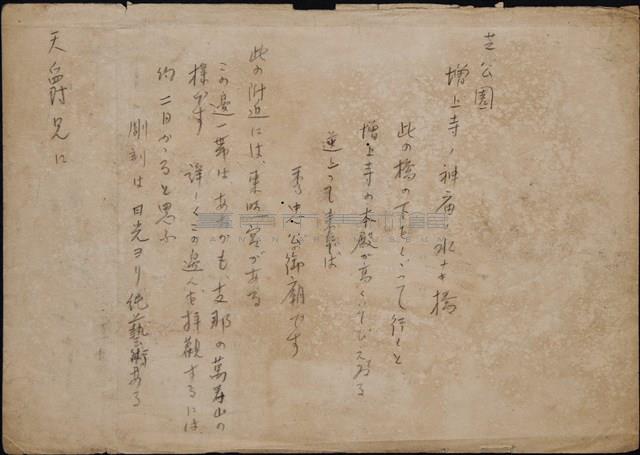 芝公園
増上寺ノ神廟ノ水ナキ橋
此の橋の下をくゞって行くと
増上寺の本殿が高くそびえる
秀忠公の御廟です
此の附近には、東照宮がある
この邊一帯は、あたかも支那の萬寿山の
様です 詳しくこの邊んを拝観するには
約二日かゝると思ふ
彫刻は日光ヨリ 藝術ある
天爵兄に